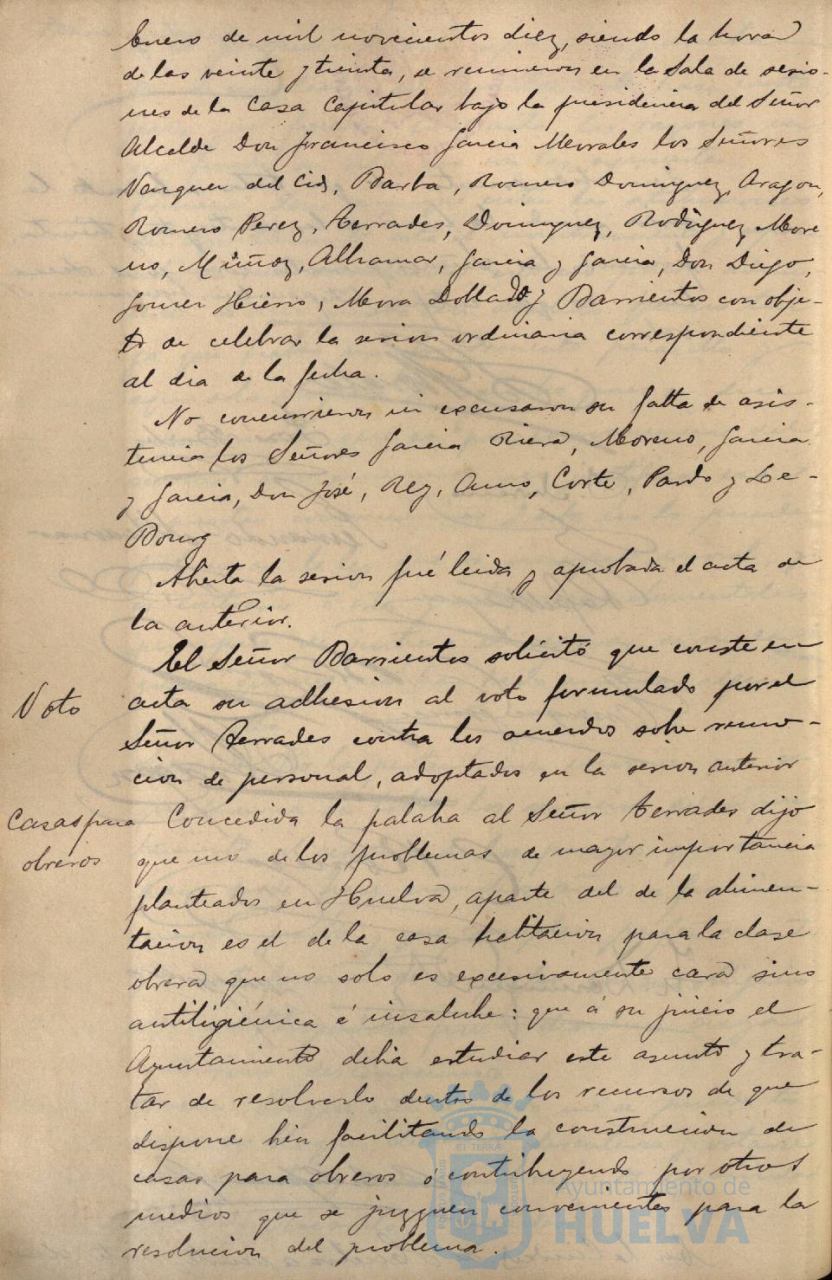 Enero de mil novecientos diez, siendo la hora
de las veinte y treinta, se reunieron en la Sala de sesio-
nes de la Casa Capitular bajo la presidencia del Señor
Alcalde Don Francisco Garcia Morales los Señores
Vazquez del Cid, Barba, Romero Dominguez, Aragon,
Romero Perez, Terrades, Dominguez, Rodriguez More
no, Muñoz, Alhamar, Garcia y Garcia, Don Diego,
Gomez Hierro, Mora Dollado y Barrientos con obje-
to de celebrar la sesion ordinaria correspondiente
al dia de la fecha.
No concurrieron ni excusaron su falta de asis-
tencia los Señores Garcia Riera, Moreno, Garcia
y Garcia, Don José, Rey, Corte, Pardo y Le-
Bourg
Abierta la sesion fué leida y aprobada el acta de
la anterior.
El Señor Barrientos solicitó que conste en
Voto acta su adhesion al voto formulado por el
Señor Terrades contra los acuerdos sobre remo-
cion de personal, adoptados en la sesion anterior
Casas para Concedida la palabra al Señor Terrades dijo
obreros que uno de los problemas de mayor importancia
planteados en Huelva, aparte del de la alimen-
tacion es el de la casa habitacion para la clase
obrera que no solo es excesivamente cara sino
antihigiénica é insalubre: que á su juicio el
Ayuntamiento debia estudiar este asunto y tra-
tar de resolverlo dentro de los recursos de que
dispone bien facilitando la construccion de
casas para obreros ó contribuyendo por otros
medios que se juzguen convenientes para la
resolucion del problema.
Ayuntamiento de
HUELVA